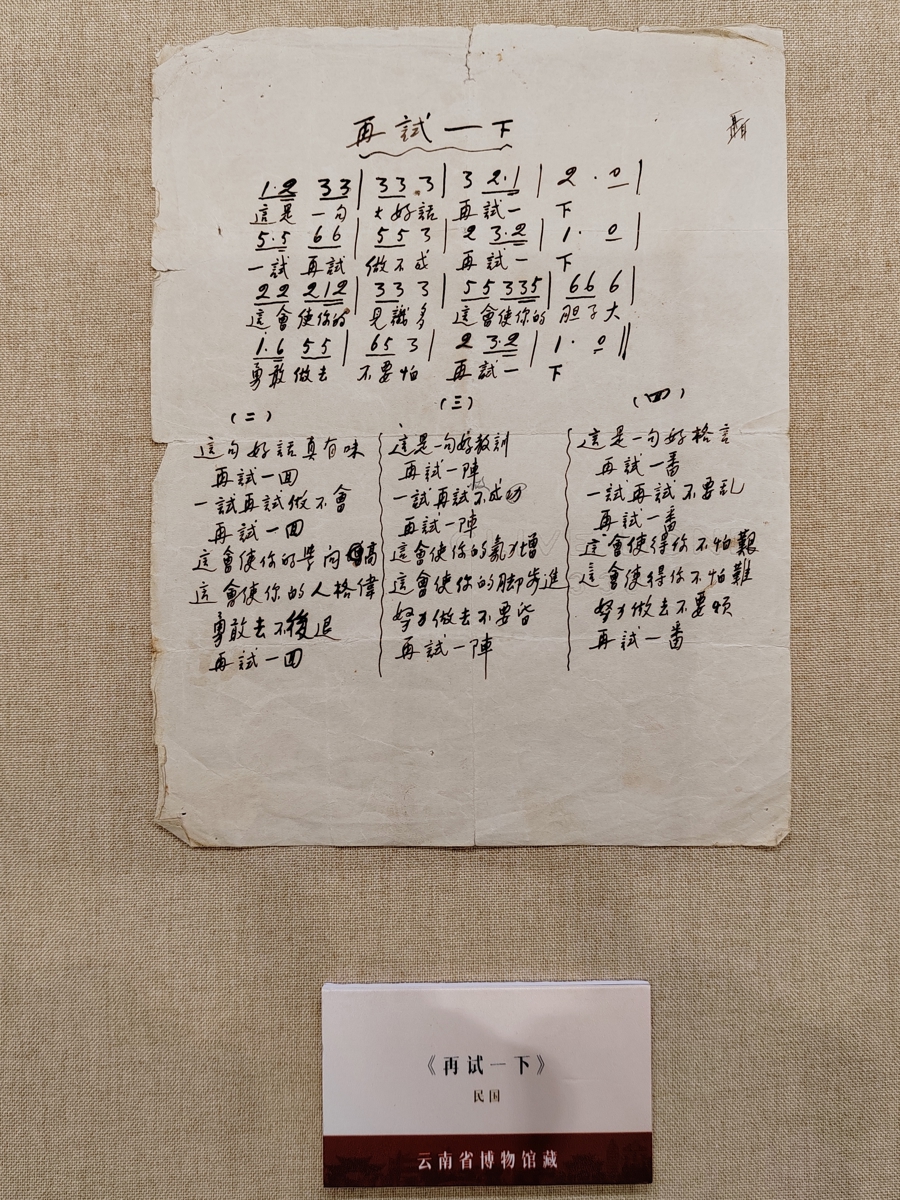 再試一下
聶耳
1·2 33 | 33 3 | 3 2·1 | 2 · 0 |
這是 一句 大好話 再試一 下
5·5 66 | 55 3 | 2 3·2 | 1 · 0 |
一試 再試 做不成 再試一 下
22 212 | 33 3 | 55 335 | 66 6 |
這會 使你的 見識多 這會使你的 胆子大
1·6 55 | 65 3 | 2 3·2 | 1 · 0 ‖
勇敢 做去 不要怕 再試一 下
(二)
這句好語真有味
再試一回
一試再試做不會
再試一回
這會使你的 向 高
這會使你的人格偉
勇敢去不後退
再試一回
(三)
這是一句好教訓
再試一陣
一試再試不成功
再試一陣
這會使你的氣力增
這會使你的脚步進
努力做去不要
再試一陣
(四)
這是一句好格言
再試一番
一試再試不要乱
再試一番
這會使得你不怕艱
這會使得你不怕難
努力做去不要煩
再試一番
《再试一下》
民国
云南省博物馆藏